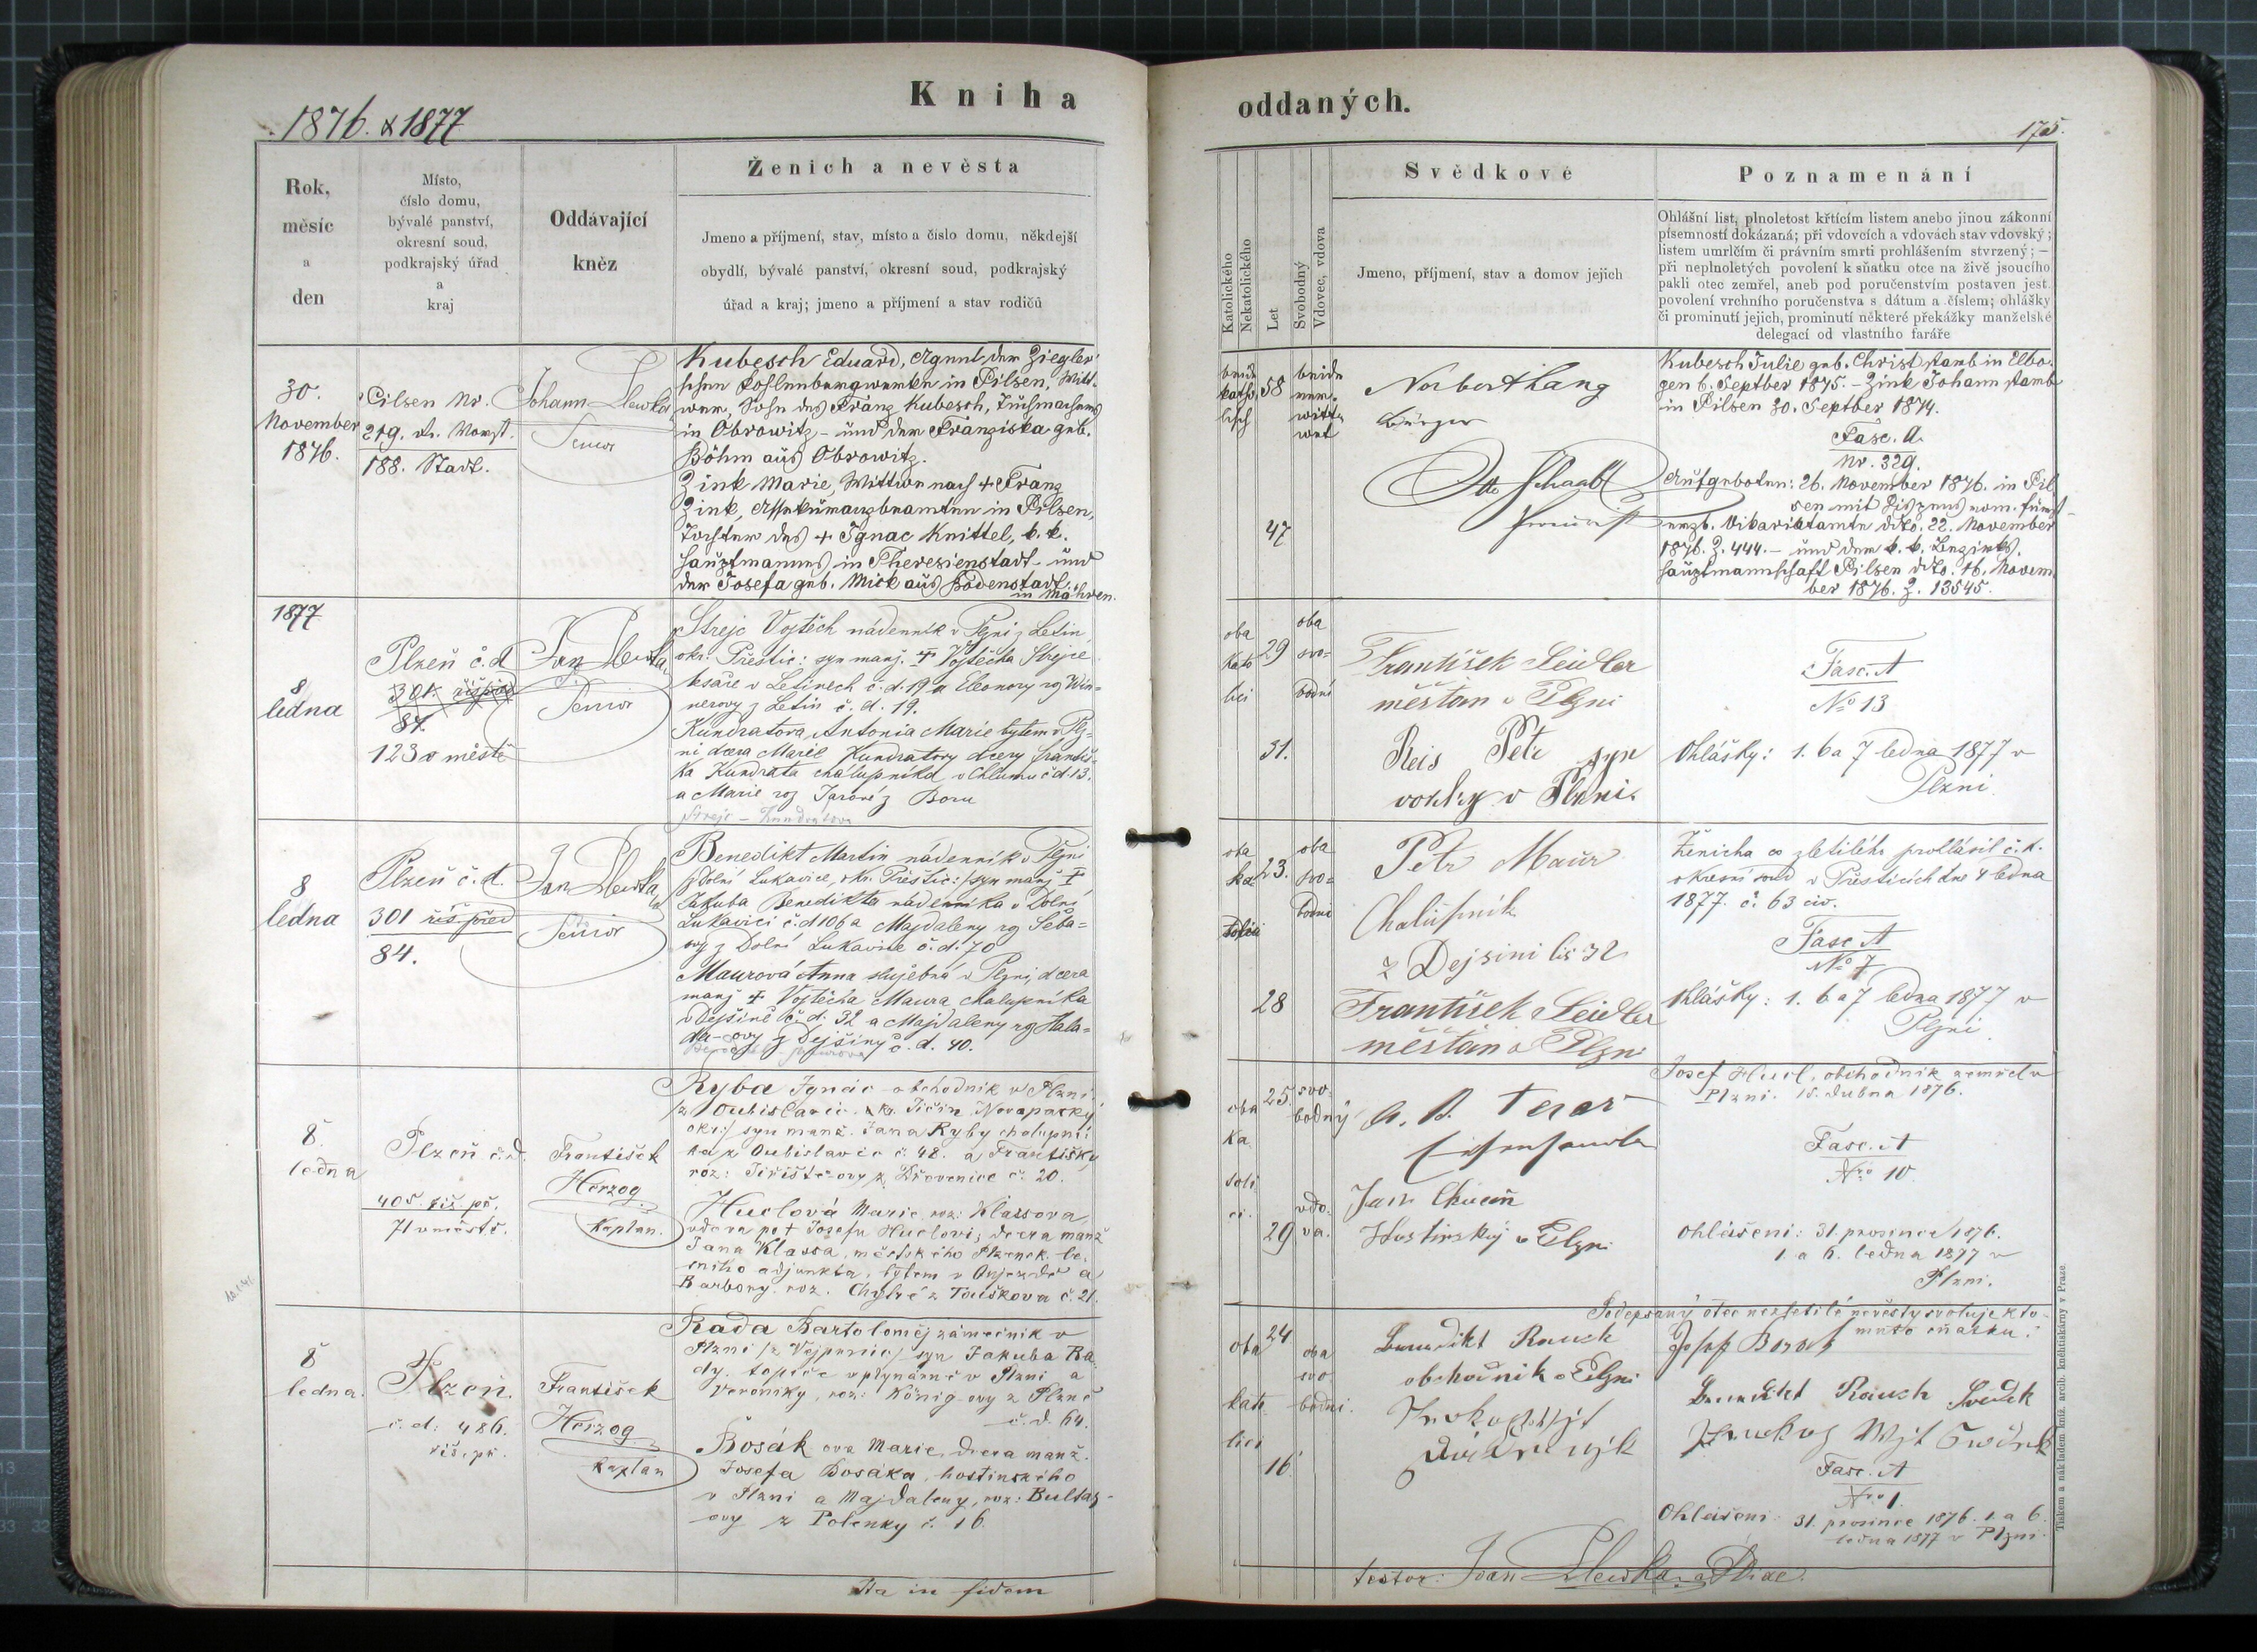 1876. & 1877
Kniha
Rok,
měsíc
a
den
Místo,
číslo domu,
bývalé panství,
okresní soud,
podkrajský úřad
a
kraj
Oddávající
kněz
Ženich a nevěsta
Jmeno a příjmení, stav, místo a číslo domu, někdejší
obydlí, bývalé panství, okresní soud, podkrajský
úřad a kraj; jmeno a příjmení a stav rodičů
30.
November
1876.
Pilsen Nr.
219.
188. Stadt.
Johann
Senior
Kubesch Eduard, Agent der Ziegler'
schen Kohlenbergwerke in Pilsen, Witt-
wer, Sohn des Franz Kubesch, Tuchmachers
in Obrowitz - und der Franziska geb.
Böhm aus Obrowitz.
Zink Marie, Wittwe nach + Franz
Zink, Assekuranzbeamten in Pilsen,
Tochter des + Ignac Knittel, k. k.
Hauptmannes in Theresienstadt - und
der Josefa geb. Mick aus Bodenstadt
in Mähren.
1877
8
ledna
Plzeň č. d.
301. říš. před
84.
123 v městě
Jan
Senior
Strejc Vojtěch nádenník v Plzni z Letin,
okr. Přeštic: syn manž. † Vojtěcha Strejce
tesaře v Letinech č. d. 19 a Eleonory roz Win-
nerovy z Letin č. d. 19.
Kundratova Antonia Marie bytem v Plz-
ni dcera Marie Kundratovy dcery Františ-
ka Kundrata chalupníka v Chlumu č d. 13.
a Marie roz z Boru
Strejc - Kundratova
8
ledna
Plzeň č. d.
301 říš. před
84.
Jan
Senior
Benedikt Martin nádenník v Plzni
z Dolní Lukavice, okr. Přeštic: / syn manž. †
Jakuba Benedikta nádenníka v Dolní
Lukavici č. d 106 a Majdaleny roz Šeba-
ovy z Dolní Lukavice č. d. 70
Maurová Anna služebná v Plzni, dcera
manž. † Vojtěcha Maura chalupníka
v Dejšině č. d. 32 a Majdaleny roz Hala-
ovy z Dejšiny č. d. 40.
8.
ledna
Plzeň č. d.
405. říš. př.
71 v městě.
František
Herzog
Kaplan.
Ryba Ignác obchodník v Plzni
/z Oubislavic. kr. Jičín, Novapacký
okr:/ syn manž. Jana Ryby chalupní-
ka z Oubislavic č. 48. a Františky
roz: Jiřiště-ovy z č. 20.
Huclová Marie roz: Klassova,
vdova po † Josefu Huclovi, dcera manž
Jana Klassa, městského Plzensk. le-
sního adjunkta, bytem v a
Barbory roz. Chytré z Touškova č. 21.
8
ledna.
Plzeň.
č. d. 486.
říš. př.
František
Herzog
Kaplan
Rada Bartoloměj zámečník v
Plzni /z Vejprnic/ syn Jakuba Ra-
dy. topiče v plynárně v Plzni a
Veroniky, roz: König-ovy z Plzně
č. d. 64.
Bosák ova Marie, dcera manž.
Josefa Bosáka, hostinského
v Plzni a Majdaleny, roz: Bultas-
ovy z Polenky č. 16.
Ita in fidem
oddaných.
175.
Katolického
Nekatolického
Let
Svobodný
Vdovec, vdova
Svědkové
Jmeno, příjmení, stav a domov jejich
Poznamenání
Ohlášní list, plnoletost křtícím listem anebo jinou zákonní
písemností dokázaná; při vdovcích a vdovách stav vdovský;
listem umrlčím či právním smrti prohlášením stvrzený; —
při neplnoletých povolení k sňatku otce na živě jsoucího
pakli otec zemřel, aneb pod poručenstvím postaven jest.
povolení vrchního poručenstva s dátum a číslem; ohlášky
či prominutí jejich, prominutí některé překážky manželské
delegací od vlastního faráře
beide
katho
lisch
58
47
beide
ver-
witt-
wet
Norbert Lang
Bürger
Otto Schaabl
Kubesch Julie geb. Christ starb in Elbo-
gen 6. Septber 1875. - Zink Johann starb
in Pilsen 30. Septber 1874.
Fasc. A.
Nr. 329.
Aufgeboten: 26. November 1876. in Pil-
sen mit Dispens vom fürst-
erzb. Vikariatamte ddto. 22. November
1876. Z. 444. - und der k. k. Bezirks-
hauptmannschaft Pilsen ddto. 16. Novem-
ber 1876. Z. 13545.
oba
kato
lici
29
31.
oba
svo-
bodni
František Seidler
měšťan v Plzni
Reis Petr syn
v Plzni.
Fasc. A
No 13
Ohlášky: 1. 6 a 7 ledna 1877 v
Plzni.
oba
ka
tolici
23.
28
oba
svo-
bodni
Petr Maur
Chalupník
z Dejsini čis 32
František Seidler
měšťan v Plzni
Ženicha co zletilého prohlásil c. k.
okresní soud v Přešticích dne 4 ledna
1877. č. 63 civ.
Fasc A
No 7
Ohlášky: 1. 6 a 7 ledna 1877 v
Plzni.
oba
ka
toli
ci.
25.
29
svo-
bodný
vdo-
va.
Jan
Hostinský v Plzni
Josef Hucl, obchodník zemřel v
Plzni. 15. dubna 1876.
Fasc. A
Nro 10
Ohlášeni: 31. prosince 1876.
1. a 6. ledna 1877 v
Plzni.
oba
kato
lici
24
16.
oba
svo
bodni.
Benedikt Rauch
obchodník v Plzni
Podepsaný otec nezletilé nevěsty svoluje k to-
muto sňatku.
Josef Bosak
Benedikt Rauch Svědek
Fasc. A
Nro 1.
Ohlášeni: 31. prosince 1876. 1. a 6.
ledna 1877 v Plzni.
testor: Joan
Tiskem a nákladem kníž. arcib. kněhtiskárny v Praze.